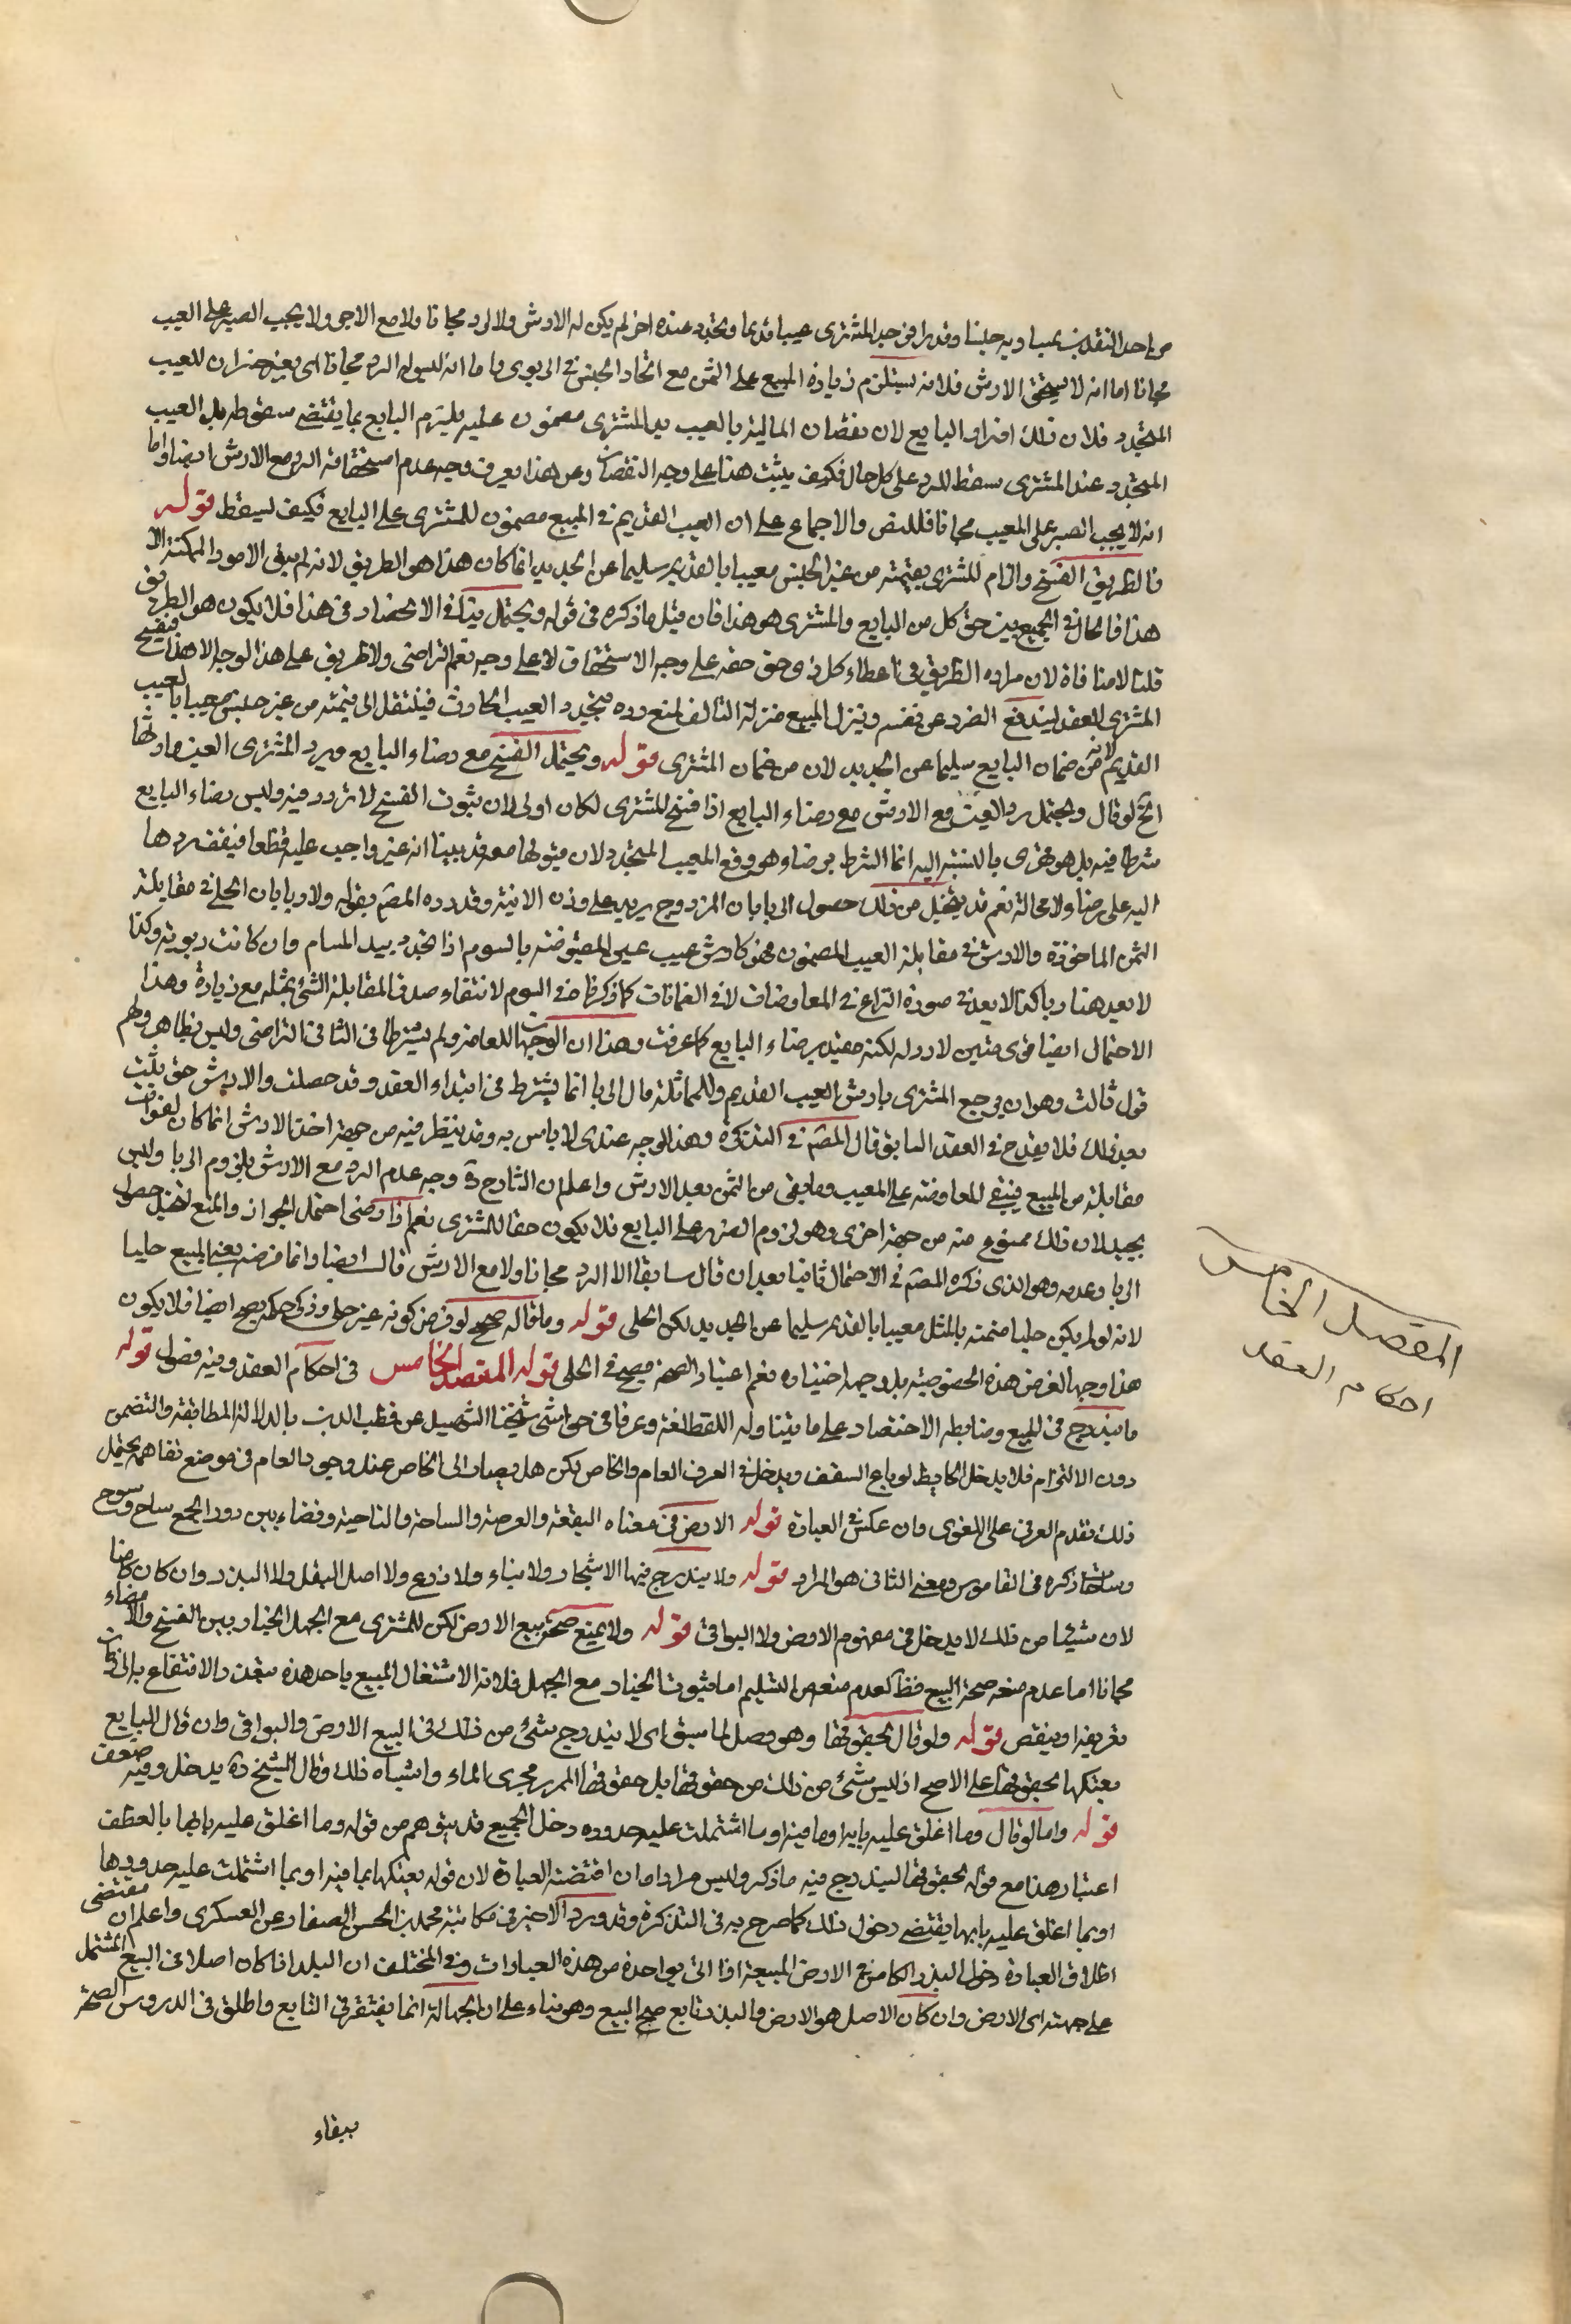 من احد النقدين بمساويه جنسا وقدرا فوجد المشترى عيبا قديما وتجدد عنده اخر لم يكن له الارش ولا الرد مجانا ولا مع الارش ولا يجب الصبر على العيب
مجانا اما انه لا يستحق الارش فلانه يستلزم زيادة المبيع على الثمن مع اتحاد الجنس في الربوى واما انه ليس له الرد مجانا اى بغير جبران للعيب
المتجدد فلان ذلك اضرار البايع لان نقصان المالية بالعيب بيد المشترى مضمون عليه لم يلتزم البايع بما يقتضى سقوطه بل العيب
المتجدد عند المشترى سقط للرد على كل حال فكيف يثبت هنا على وجه النقصان ومن هذا يعرف وجه عدم استحقاقه الرد مع الارش ايضا واما
انه لا يجب الصبر على المعيب مجانا فللنص والاجماع على ان العيب القديم في المبيع مضمون للمشترى على البايع فكيف يسقط قوله
فالطريق الفسخ والزام المشترى بقيمته من غير الجنس معيبا بالقديم سليما عن الجديد انما كان هذا هو الطريق لانه لم يبق الامور الممكنة الا
هذا فالحال في الجمع بين حق كل من البايع والمشترى هو هذا فان قيل ما ذكره في قوله ويحتمل ينافى الانحصار في هذا فلا يكون هو الطريق
قلنا لا منافاة لان مراده الطريق في اعطاء كل ذى حق حقه على وجه الاستحقاق لا على وجه يعم التراضى ولا طريق على هذا الوجه الا هذا فيفسخ
المشترى العقد ليندفع الضرر عن نفسه وينزل المبيع منزلة التالف لمنع رده بتجدد العيب الحادث فينتقل الى قيمته من غير جنسه معيبا بالعيب
القديم لانه من ضمان البايع سليما عن الجديد لان من ضمان المشترى قوله ويحتمل الفسخ مع رضاء البايع ويرد المشترى العين وارشها
الخ لو قال ويحتمل رد العين مع الارش مع رضاء البايع اذا فسخ المشترى لكان اولى لان ثبوت الفسخ لا تردد فيه وليس رضاء البايع
شرطا فيه بل هو قهرى بالنسبة اليه انما الشرط برضاه هو دفع المعيب المتجدد لان قبولها معه قد بينا انه غير واجب عليه قطعا فيقف ردها
اليه على رضاه لا محالة نعم قد يتخيل من ذلك حصول الربا بان المردود ح يزيد على وزن الانية وقد رده المصم بقوله ولا ربا بان الحلى في مقابلة
الثمن الماخوذة والارش في مقابلة العيب المضمون فهو كارش عيب عين المقبوضة بالسوم اذا تجدد بيد المسام وان كانت ربوية وكذا
لا يعد هنا ربا كذا لا يعد في صورة النزاع في المعاوضات لا في الضمانات كما ذكرنا في السوم لانتفاء صدق المقابلة الشئ بمثله مع زيادة وهذا
الاحتمال ايضا قوى متين لا رد له لكنه مقيد برضاء البايع كما عرفت وهذا ان الوجهان للعلامة ولم يشترط في الثانى التراضى وليس بظاهر ولهم
قول ثالث وهو ان يرجع المشترى بارش العيب القديم والمماثلة مال الربا انما يشترط في ابتداء العقد وقد حصلت والارش حق يثبت
بعد ذلك فلا يقدح في العقد السابق قال المصم في التذكرة وهذا الوجه عندى لا باس به وقد ينظر فيه من جهة اخذ الارش انما كان لفوات
مقابلة من المبيع فيبقى المعاوضة على المعيب وما بقى من الثمن بعد الارش واعلم ان الشارح ره وجه عدم الرد مع الارش بلزوم الربا وليس
بجيد لان ذلك ممنوع منه من جهة اخرى وهو لزوم الضرر على البايع فلا يكون حقا للمشترى نعم اذا رضى احتمل الجواز والمنع لتخيل حصول
الربا وعدمه وهو الذى ذكره المصم في الاحتمال ثانيا بعد ان قال سابقا الا الرد مجانا ولا مع الارش قال ايضا وانما فرضه بعنى المبيع حليا
لانه لو لم يكن حليا ضمنه بالمثل معيبا بالقديم سليما عن الجديد لكن الحلى قوله وما قاله صحيح لو فرض كونه غير حلى وذكر حكمه صح ايضا فلا يكون
هذا وجه الفرض هذه الخصوصية بل وجه اختياره نعم اعتبار الصحة صحيح في الحلى قوله المقصد الخامس في احكام العقد وفيه فصول قوله
ما يندرج في المبيع وضابطه الاختصار على ما يتناوله اللفظ لغة وعرفا في حواشى شيخنا الشهيد عن قطب الدين بالدلالة المطابقة والتضمن
دون الالتزام فلا يدخل الحايط لو باع السقف ويدخل في العرف العام والخاص لكن هل يصار الى الخاص عند وجود العام في موضع تفاهمه يحتمل
ذلك تقدم العرفى على اللغوى وان عكس في العبارة قوله الارض في معناه البقعة والعرصة والساحة والناحية وفضاء بين دور الجمع ساح وسوح
وساحات ذكره في القاموس ومعنى الثانى هو المراد قوله ولا يندرج فيها الاشجار ولا بناء ولا زرع ولا اصل البقل ولا البذر وان كان كامنا
لان شيئا من ذلك لا يدخل في مفهوم الارض ولا البواقى قوله ولا يمنع صحة بيع الارض لكن للمشترى مع الجهل الخيار بين الفسخ والامضاء
مجانا اما عدم منعه صحة البيع فظ لعدم منعه من التسليم اما ثبوت الخيار مع الجهل فلانه الاشتغال المبيع باحد هذه يتعذر الانتفاع بها الى زمان
تفريغها وينقص قوله ولو قال بحقوقها وهو وصل لما سبق اى لا يندرج شئ من ذلك في البيع الارض والبواقى وان قال البايع
بعتكها بحقوقها على الاصح اذ ليس شئ من ذلك من حقوقها بل حقوقها الممر ومجرى الماء واشباه ذلك وقال الشيخ ره يدخل وفيه ضعف
قوله واما لو قال وما اغلق عليه بابه او ما فيها او ما اشتملت عليه حدوده دخل الجميع قد يتوهم من قوله وما اغلق عليه بابها بالعطف
اعتبار هذا مع قوله بحقوقها ليندرج فيه ما ذكر وليس مرادا ما ان اقتضته العبارة لان قوله بعتكها بما فيها او بما اشتملت عليه حدودها
او بما اغلق عليه بابها يقتضى دخول ذلك كما صرح به في التذكرة وقد ورد الاخير في مكاتبة محمد بن الحسن الصفار عن العسكرى واعلم ان مقتضى
اطلاق العبارة دخول البذر الكامن في الارض المبيعة اذا اتى بواحدة من هذه العبارات وفى المختلف ان البذر اذا كان اصلا في البيع المشتمل
على جهته اى الارض وان كان الاصل هو الارض والبذر تابع صح البيع وهو بناء على ان الجهالة انما يفتقر في التابع واطلق في الدروس الصحة
ببقاء
المقصد الخامس
احكام العقد